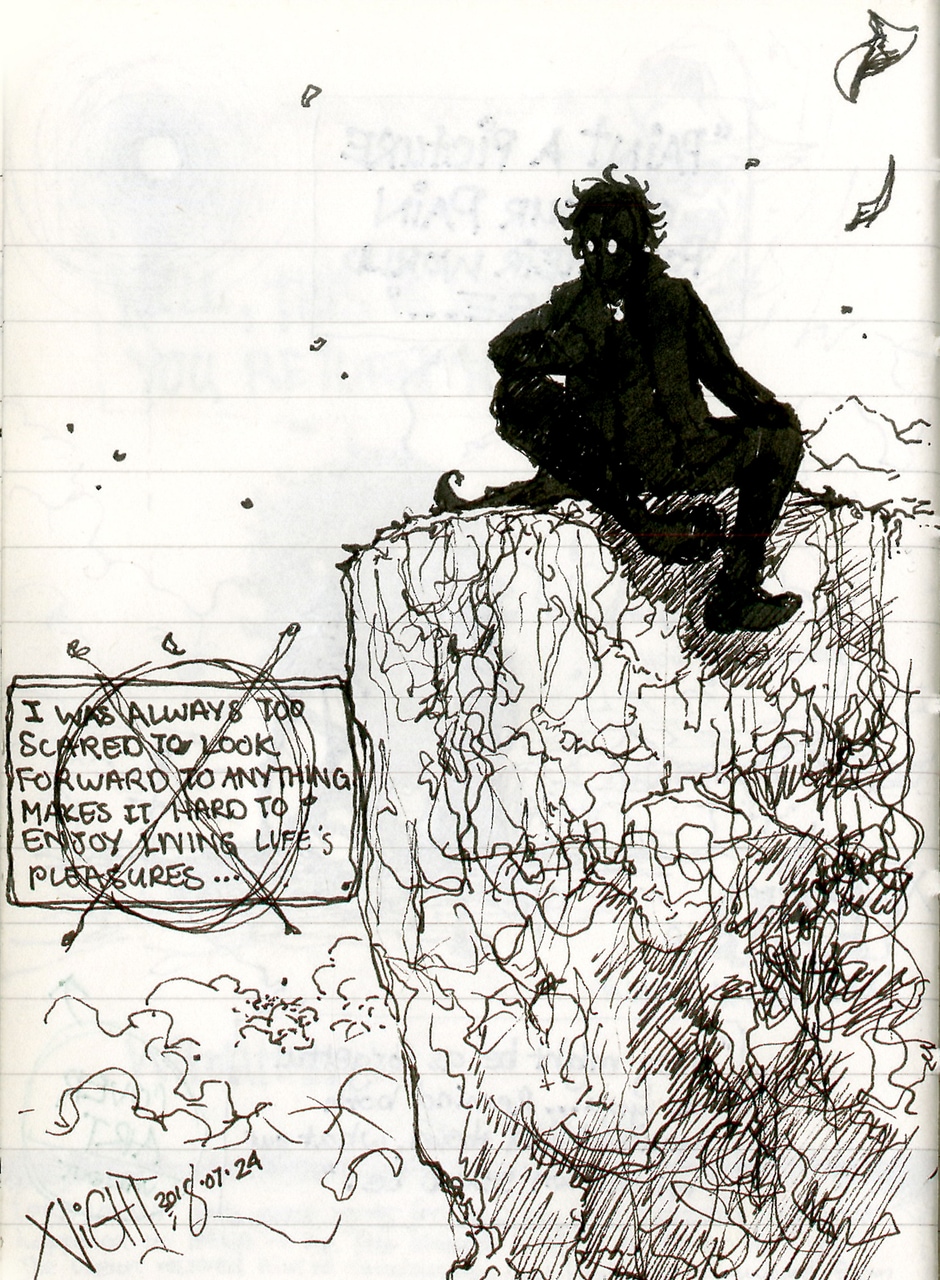 I WAS ALWAYS TOO
SCARED TO LOOK
FORWARD TO ANYTHING
MAKES IT HARD TO
ENJOY LIVING LIFE'S
PLEASURES...
XLIGHT 2018.07.24